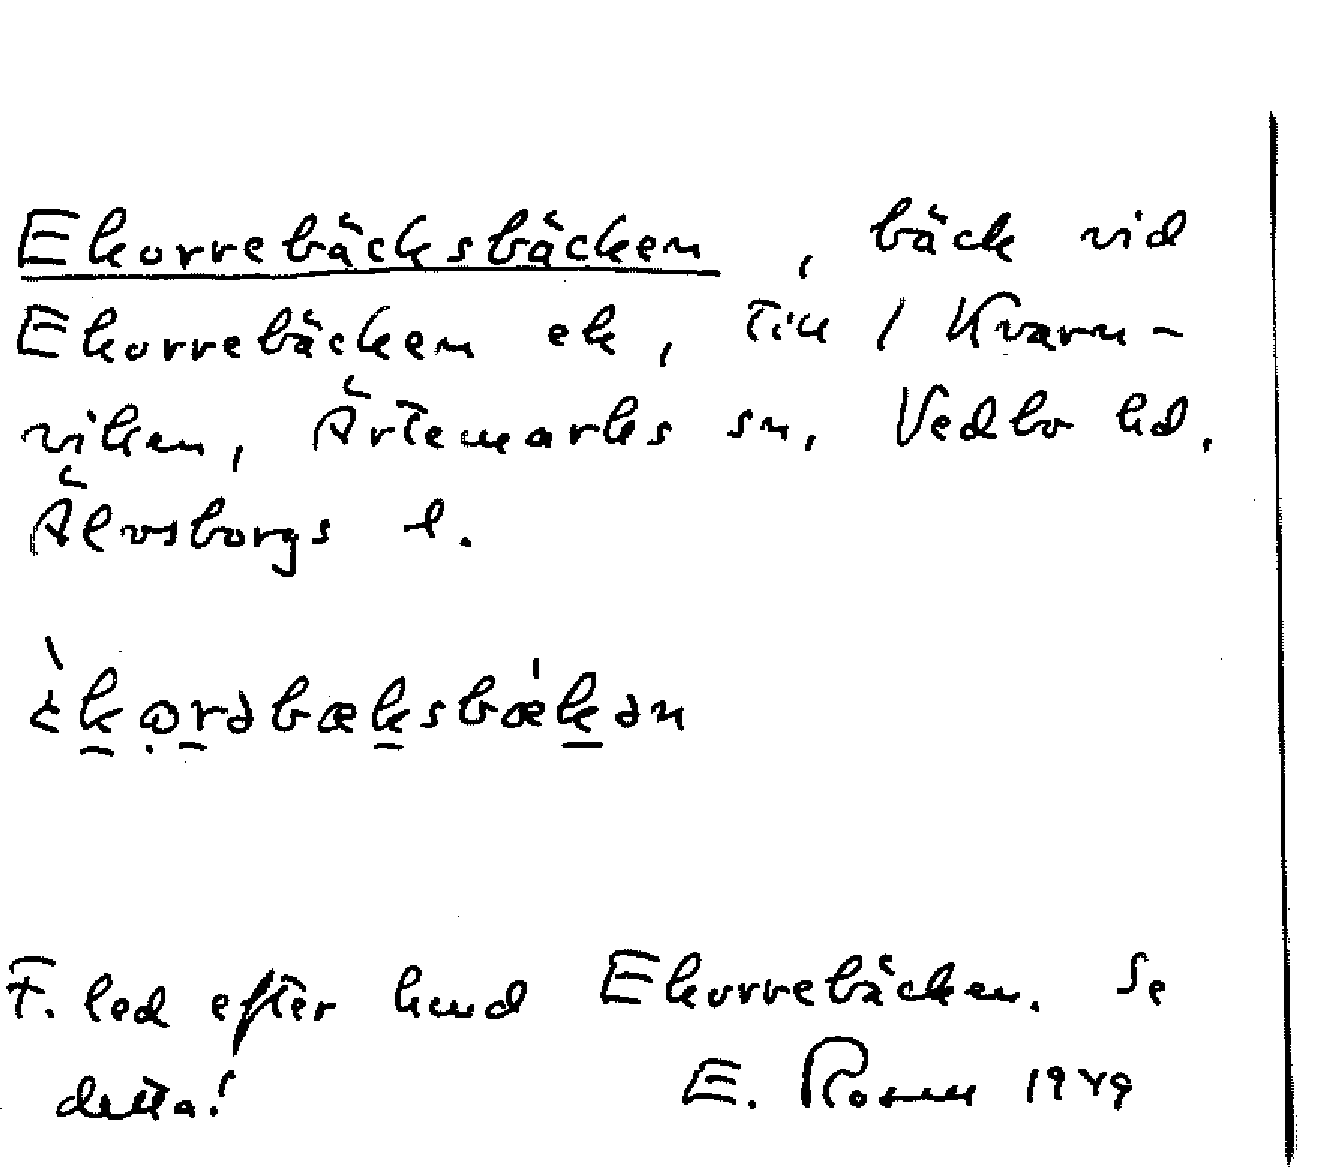 Ekorrebäcksbäcken, bäck vid
Ekorrebäcken ek, till / Kvarn-
viken, Ärtemarks sn, Vedbo hd,
Älvsborgs l.
èko̠̣r̠əbæk̠sbǽk̠ən
F. led efter hmd Ekorrebäcken. Se
detta!
E. Rosell 1949